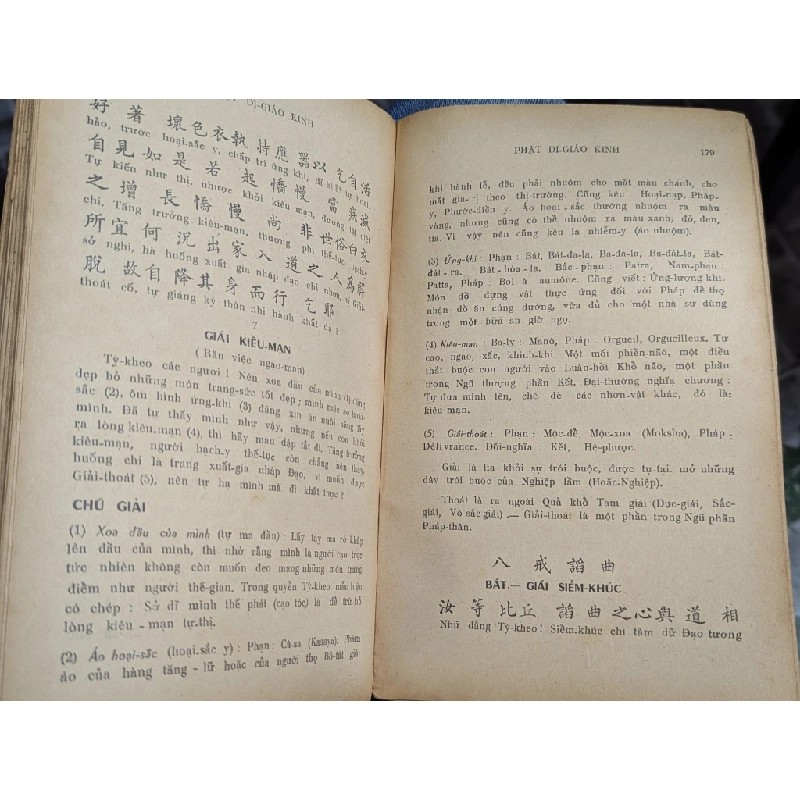 DI-GIÁO KINH
好 著 壞色衣執 持應 器以 乞自活
hảo, trước hoại-sắc y, chấp trì ứng khí, dĩ khất tự hoạt,
自見 如 是 若 起 憍慢 當 疾滅
Tự kiến như thị, nhược khởi kiêu mạn, đương tật diệt
之 增 長 憍 慢 尚 非 世俗白衣
chi, Tăng trưởng kiêu-mạn, thượng phi thế-tục
所 宜 何 況 出 家 入 道 之 人 為解
sở nghi, hà huống xuất gia nhập đạo chi nhơn, vị Giải-
脫 故自降其身而行 乞 耶
thoát cố, tự giáng kỳ thân nhi hành khất da ?
7
GIẢI KIÊU-MẠN
( Răn việc ngạo-mạn)
Tỳ-kheo các ngươi ! Nên xoa đầu của mình (1) đặng
dẹp bỏ những món trang-sức tốt đẹp ; mình mặc áo hoại-
sắc (2), ôm bình ứng-khí (3) đặng xin ăn nuôi sống lấy
mình. Đã tự thấy mình như vậy, nhưng nếu còn khởi
ra lòng kiêu.mạn (4), thì hãy mau dập tắt đi. Tăng trưởng
kiêu-mạn, người bạch-y thế-tục còn chẳng nên thay,
huống chi là trang xuất-gia nhập Đạo, vì muốn được
Giải-thoát (5), nên tự hạ mình mà đi khất thực ?
CHÚ GIẢI
(1) Xoa đầu của mình (tự ma đầu) : Lấy tay ma rờ khắp
lên đầu của mình, thì nhớ rằng mình là người cạo trọc
tức nhiên không còn muốn đeo mang những xoa trang
điểm như người thế-gian. Trong quyển Tỳ-kheo
có chép : Sở dĩ mình thế phát (cạo tóc) là để trừ bỏ
lòng kiêu - mạn tự.thị.
(2) Áo hoại-sắc (hoại.sắc y) : Phạn : Cà-sa (Kasaya). Phàm
áo của hàng tăng - lữ hoặc của người thọ Bồ-tát giới
PHẬT DI-GIÁO KINH 179
khi hành lễ, đều phải nhuộm cho mất màu chánh, cho
mất gia-trị theo thị.trường. Cũng kêu Hoại-nạp, Pháp-
y, Phước-điền y. Áo hoại - sắc thường nhuộm ra màu
vàng, nhưng cũng có thể nhuộm ra màu xanh, đỏ, đen,
tía. Vì vậy nên cũng kêu là nhiễm-y (áo nhuộm).
(3) Ứng-khí : Phạn : Bát, Bát-đa-la, Ba-đa-la, Ba-đát-la, Bát-
đát - ra. Bát - hòa - la. Bắc - phạn : Patra, Nam-phạn :
Patta, Pháp : Bol à aumône. Cũng viết : Ứng-lượng khí.
Món đồ đựng vật thực ứng đối với Pháp để thọ
nhận đồ ăn cúng dường, vừa đủ cho một nhà sư dùng
trong một bữa ăn giờ ngọ.
(4) Kiêu-mạn : Ba-ly : Mano, Pháp : Orgueil, Orgueilleux. Tự
cao, ngạo, xấc, khinh-khi. Một mối phiền-não, một điều
thắt buộc con người vào Luân-hồi Khổ não, một phần
trong Ngũ thượng phần Kết. Đại-thường nghĩa chương :
Tự đưa mình lên, chê đè các nhơn-vật khác, đó là:
kiêu mạn.
(5) Giải-thoát : Phạn : Mộc-đề, Mộc-xoa (Moksha), Pháp :
Délivrance. Đối-nghĩa : Kết, Hệ-phược.
Giải là ha khỏi sự trói buộc, được tự-tại. mở những
dây trói buộc của Nghiệp lầm (Hoặc-Nghiệp).
Thoát là ra ngoài Quả khổ Tam giải (Dục-giái, Sắc-
giái, Vô sắc giái) — Giải-thoát là một phần trong Ngũ phần
Pháp-thân.
八 戒 諂 曲
BÁT.— GIÁI SIỂM-KHÚC
汝 等 比丘 諂 曲之心與 道 相
Nhữ đẳng Tỳ-kheo ! Siểm-khúc chi tâm dữ Đạo tương